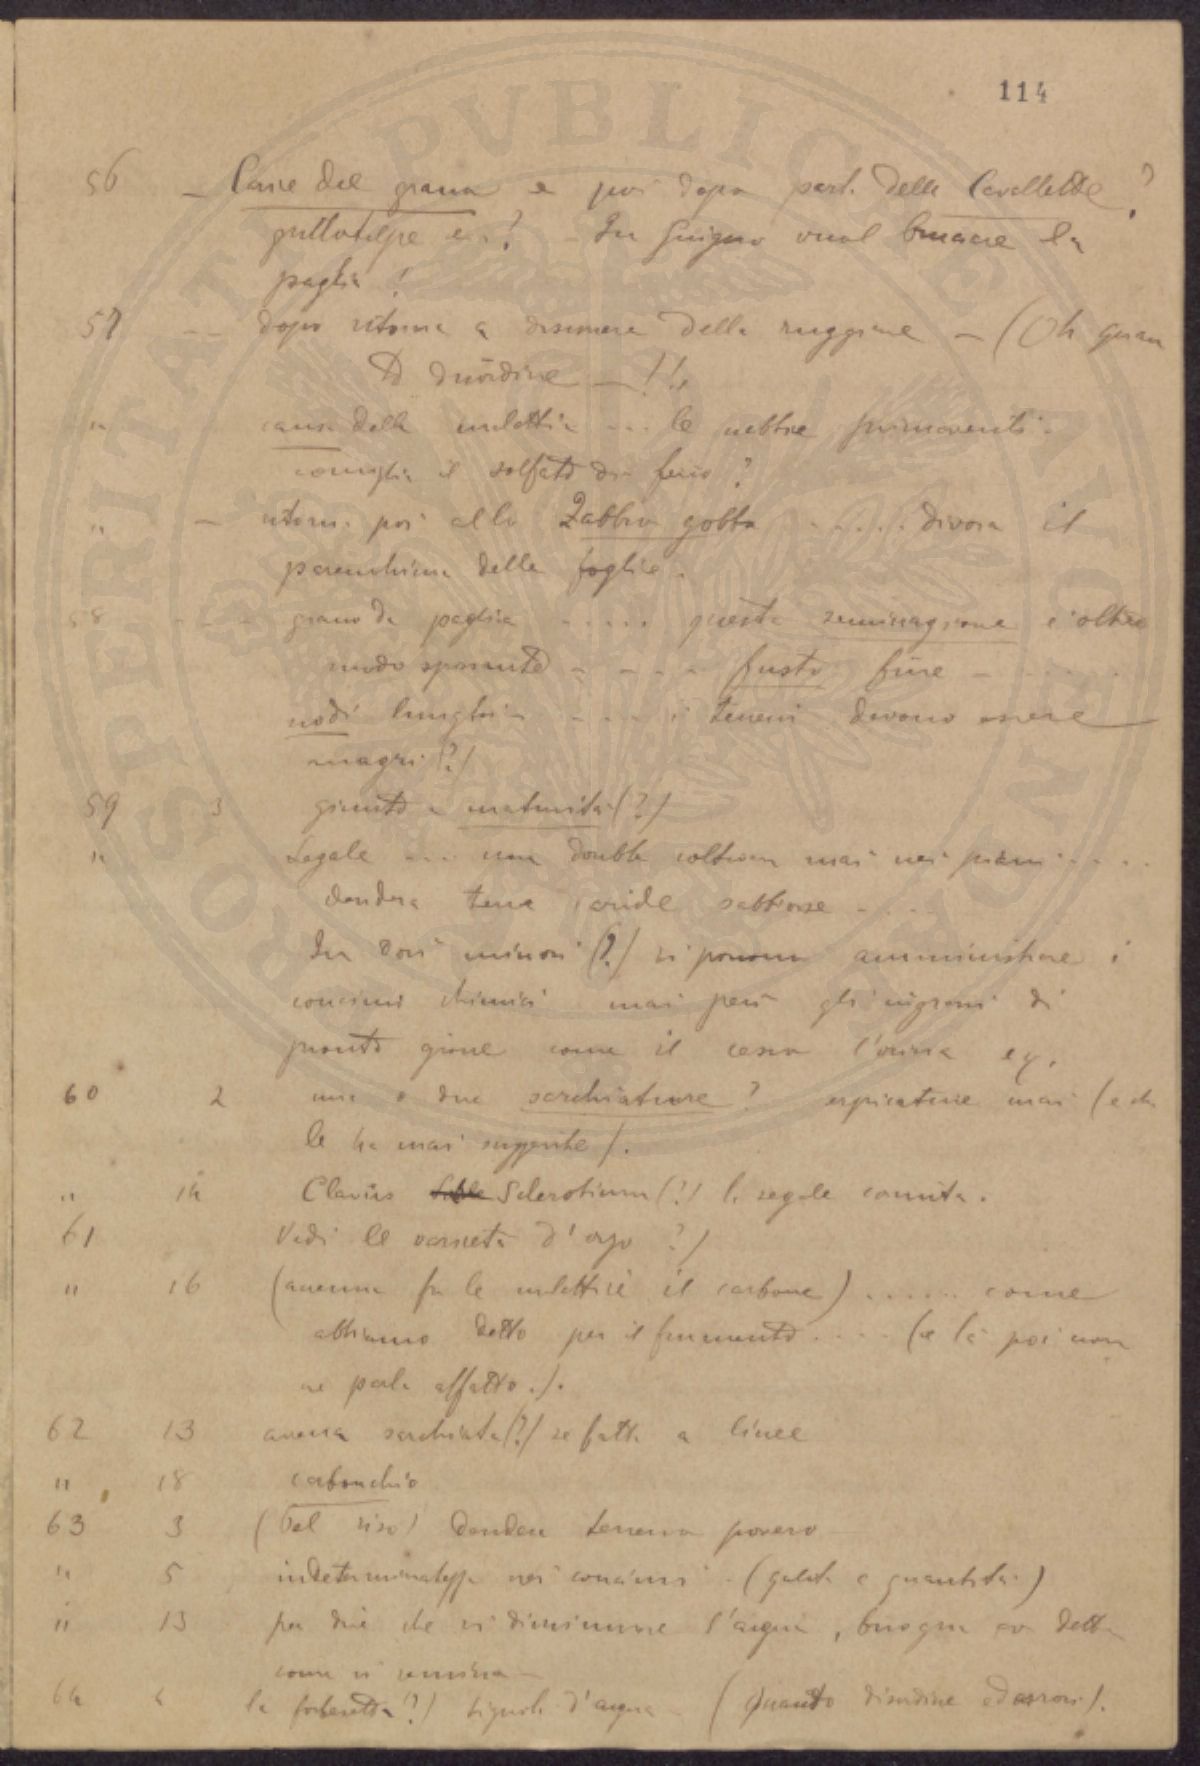 114
56 – Carie del grano e poi dopo parl. delle Cavallette?
grillotalpe e..! – In Giugno vuol bruciare la
paglia!
57 – dopo ritorna a discorrere della ruggine – (Oh quan
to disordine –!!
" causa della malattia ... le nebbie primaverili.
consiglia il solfato di ferro?
" – ritorna poi allo Zabbro gobbo ..... divora il
parenchima delle foglie.
58 grano da paglia ..... questa seminagione è oltre
modo spossante - - - - fusto fine - .....
nodi lunghi - ..... i terreni devono essere
magri (?)
59 3 giunto a maturità (?)
" Segale ... non dovrebbe coltivarsi mai nei piani ....
domanda terre aride sabbiose ....
In dosi minori (?) si possono amministrare i
concimi chimici mai però gli ingrassi di
pronta azione come il cesso l'orina eg.
60 2 una o due sarchiature? erpicature mai (e chi
le ha mai suggerite).
" 14 Clavus Sclerotium (!) la segale cornuta.
61 Vedi le varietà d'orzo?)
" 16 (accenna fra le malattie il carbone) ...... come
abbiamo detto per il frumento .... (e là poi non
ne parla affatto.).
62 13 avena sarchiata (?) se fatta a linee
" 18 carbonchio
63 3 (Del riso) domanda terreno povero
" 5 indeterminatezza nei concimi - (qualità e quantità)
" 13 poi dice che si diminuisce l'acqua, bisogna aver detto
come si semina –
64 4 la forbicetta (?) d'acqua – (Quanto disordine ed errori).